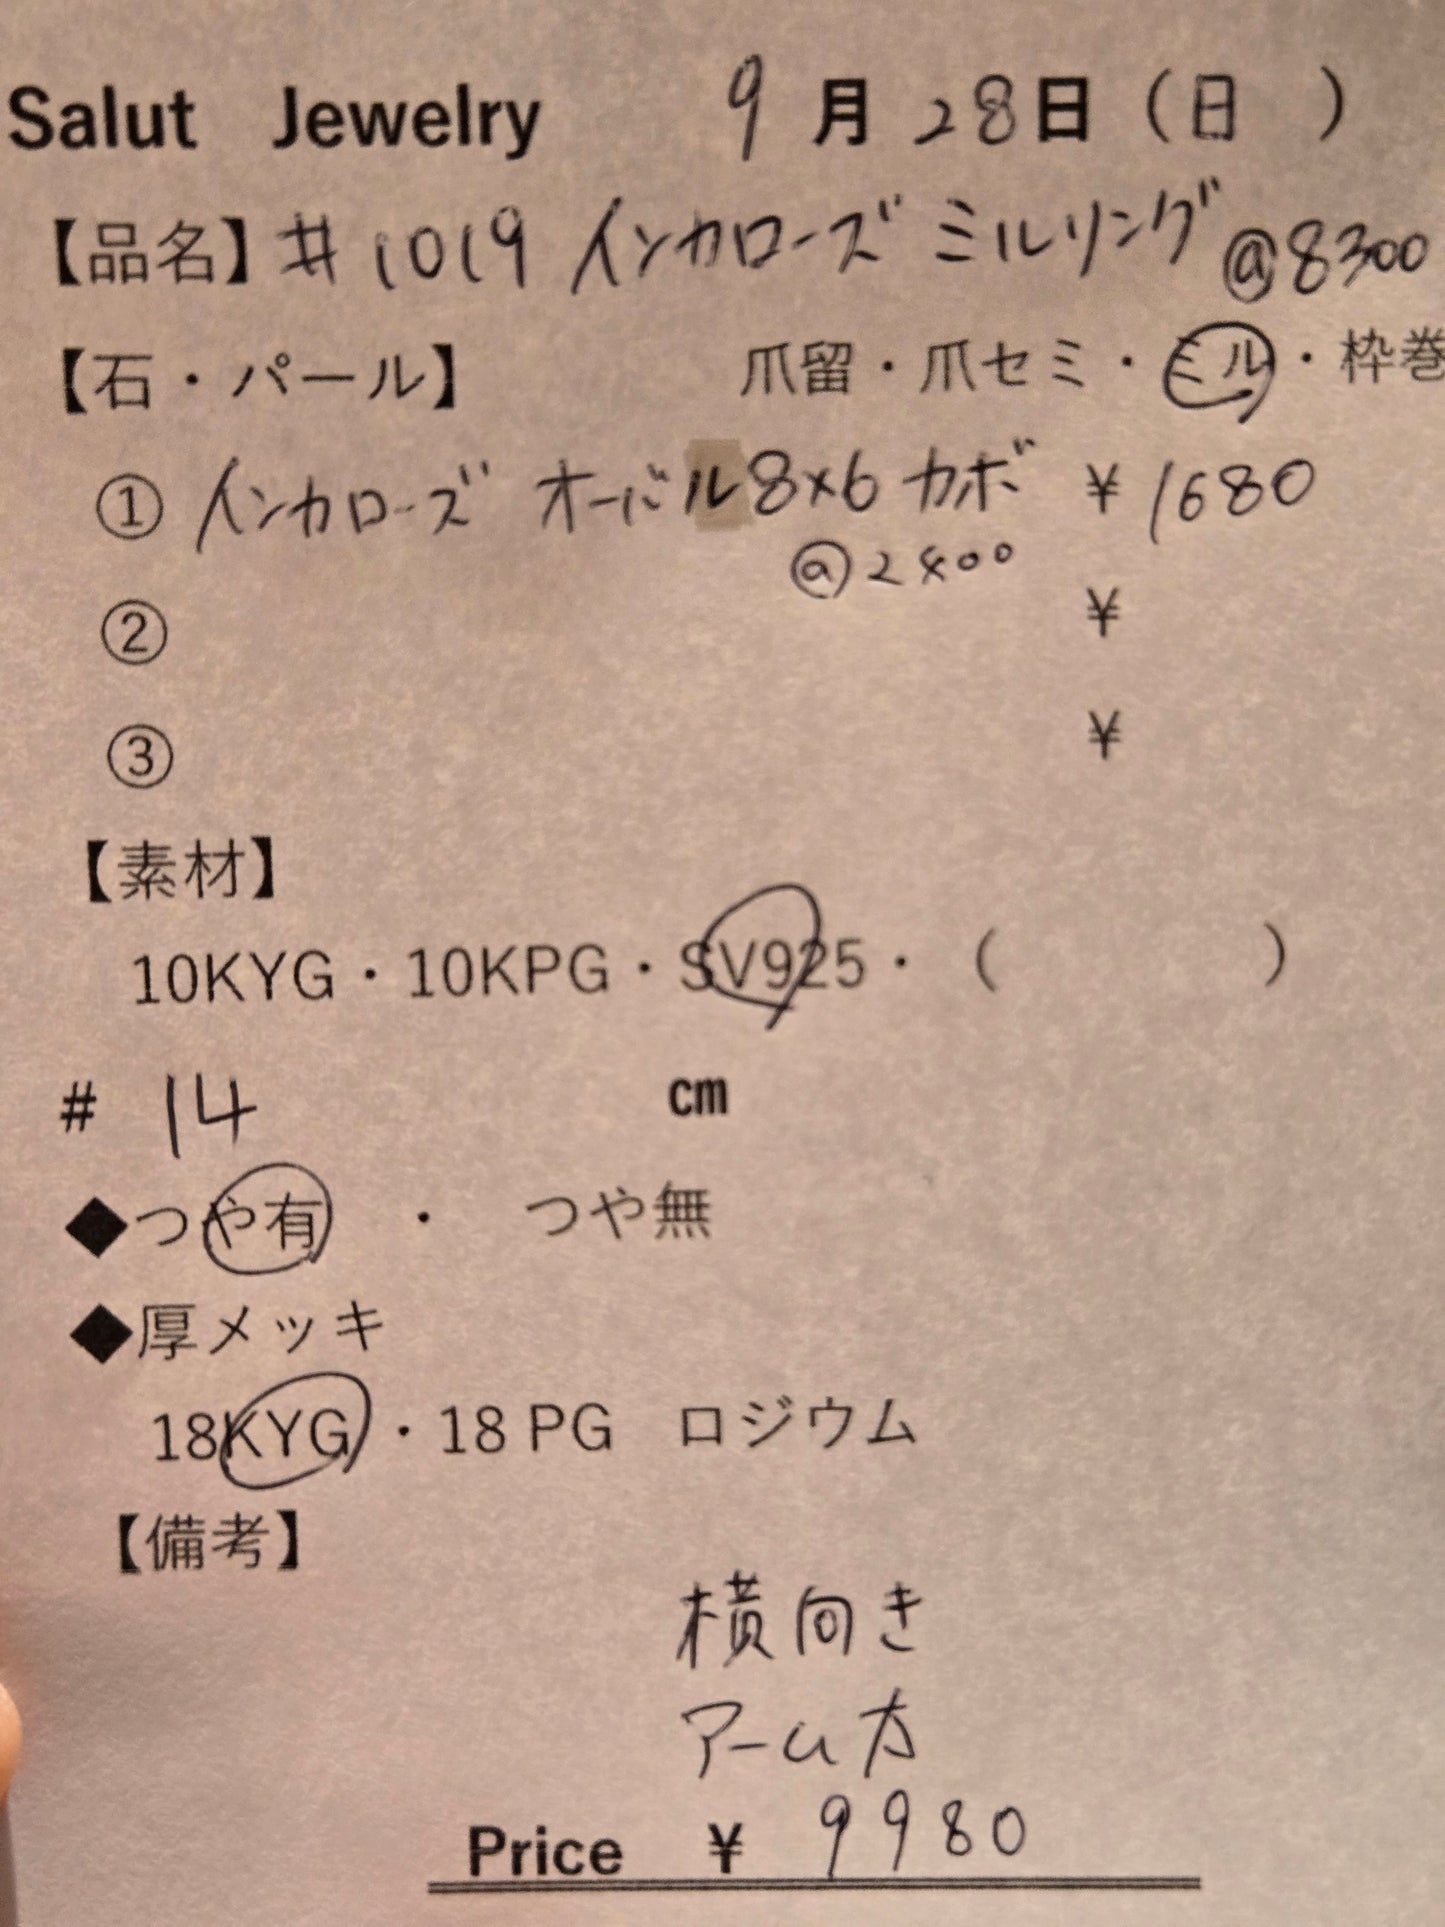 Salut Jewelry 9月28日（日 ）
【品名】# 1019 インカローズ ミルリング @8300
【石・パール】 爪留・爪セミ・ミル・枠巻
① インカローズ オーバル 8×6 カボ ¥1680
@2400
② ¥
③ ¥
【素材】
10KYG・10KPG・SV925・（ ）
# 14 cm
◆つや有 ・ つや無
◆厚メッキ
18KYG・18 PG ロジウム
【備考】
横向き
アーム太
Price ¥ 9980